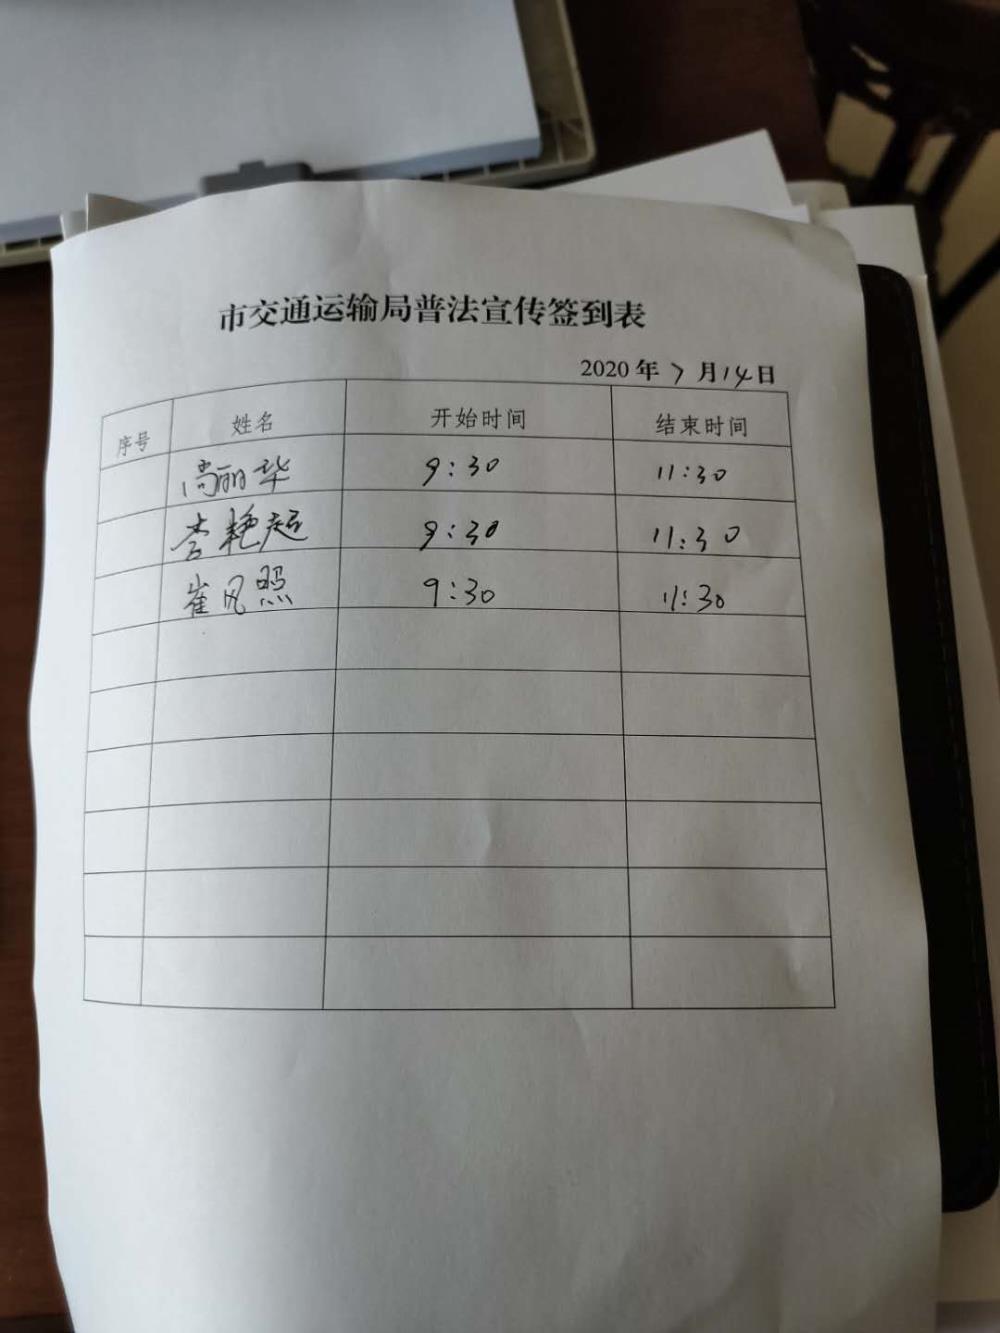 市交通运输局普法宣传签到表
2020年7月14日
序号 姓名 开始时间 结束时间
尚丽华 9:30 11:30
李艳超 9:30 11:30
崔风照 9:30 11:30